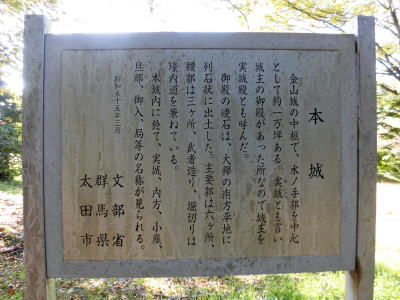 本城
金山城の中枢で、水ノ手郭を中心
として約一万坪ある。実城とも言い
城主の御殿があった所なので城主を
実城殿とも呼んだ。
御殿の礎石は、大欅の南方平地に
列石状に出土した。主要郭は六ヶ所、
腰郭は三ヶ所、武者造り、堀切りは
壕内道を兼ねている。
本城内に於て、実城、内方、小座、
旦那、御入、局等の名称が見られる。
昭和五十五年三月
文部省
群馬県
太田市